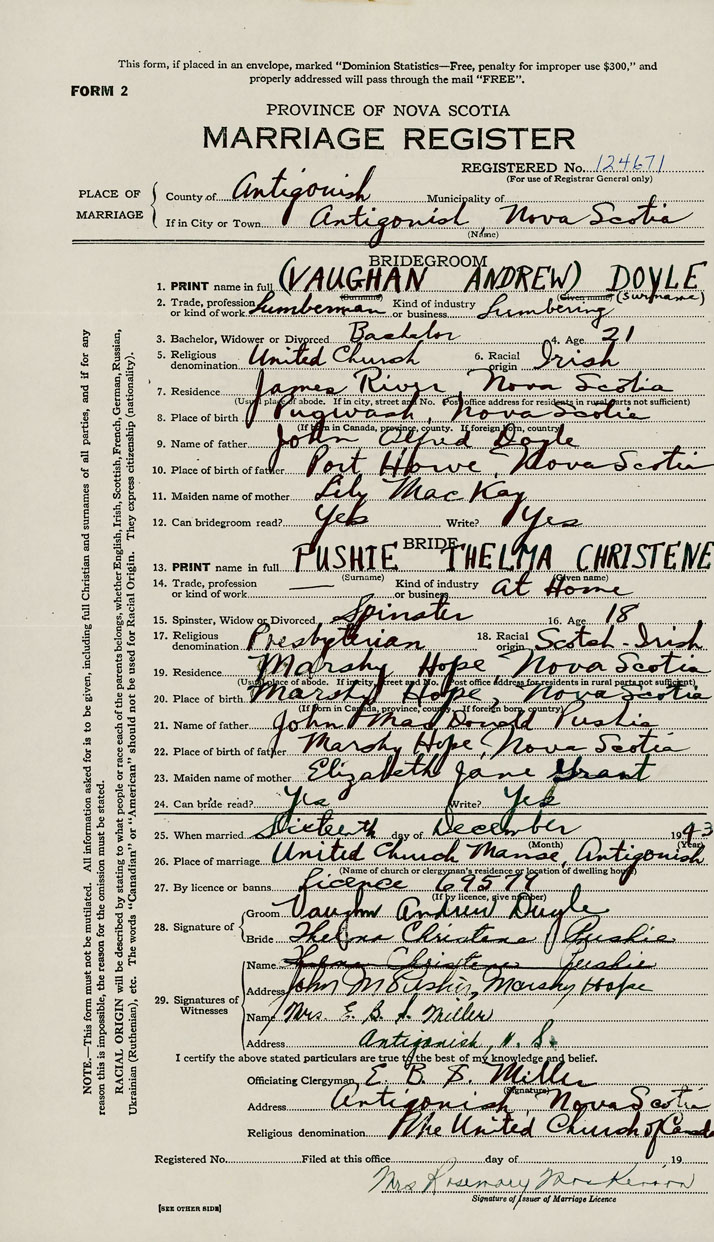 This form, if placed in an envelope, marked "Dominion Statistics—Free, penalty for improper use $300," and
properly addressed will pass through the mail "FREE".
FORM 2
PROVINCE OF NOVA SCOTIA
MARRIAGE REGISTER
REGISTERED No. 124671
(For use of Registrar General only)
PLACE OF MARRIAGE
County of Antigonish Municipality of
If in City or Town Antigonish, Nova Scotia
(Name)
BRIDEGROOM
1. PRINT name in full (VAUGHAN ANDREW) DOYLE
(Surname) (Given name) (Surname)
2. Trade, profession or kind of work Lumberman Kind of industry or business Lumbering
3. Bachelor, Widower or Divorced Bachelor 4. Age 21
5. Religious denomination United Church 6. Racial origin Irish
7. Residence James River, Nova Scotia
(Usual place of abode. If in city, street and No. Post office address for residents in rural parts not sufficient)
8. Place of birth Pugwash, Nova Scotia
(If born in Canada, province, county. If foreign born, country)
9. Name of father John Alfred Doyle
10. Place of birth of father Port Howe, Nova Scotia
11. Maiden name of mother Lily MacKay
12. Can bridegroom read? Yes Write? Yes
BRIDE
13. PRINT name in full PUSHIE THELMA CHRISTENE
(Surname) (Given name)
14. Trade, profession or kind of work — Kind of industry or business at Home
15. Spinster, Widow or Divorced Spinster 16. Age 18
17. Religious denomination Presbyterian 18. Racial origin Scotch-Irish
19. Residence Marshy Hope, Nova Scotia
(Usual place of abode. If in city, street and No. Post office address for residents in rural parts not sufficient)
20. Place of birth Marshy Hope, Nova Scotia
(If born in Canada, province, county. If foreign born, country)
21. Name of father John MacDonald Pushie
22. Place of birth of father Marshy Hope, Nova Scotia
23. Maiden name of mother Elizabeth Jane Grant
24. Can bride read? Yes Write? Yes
25. When married Sixteenth day of December 1943
(Month) (Year)
26. Place of marriage United Church Manse, Antigonish
(Name of church or clergyman's residence or location of dwelling house)
27. By licence or banns Licence 69577
(If by licence, give number)
28. Signature of Groom Vaughn Andrew Doyle
Bride Thelma Christene Pushie
29. Signatures of Witnesses
Name Christene Pushie
Address John M Pushie, Marshy Hoope
Name Mrs. E. B. S. Miller
Address Antigonish, N. S.
I certify the above stated particulars are true to the best of my knowledge and belief.
Officiating Clergyman E. B. S. Miller
(Signature)
Address Antigonish, Nova Scotia
Religious denomination The United Church of Canada
Registered No. Filed at this office day of 19
Mrs Rosemary MacKinnon
Signature of Issuer of Marriage Licence
[SEE OTHER SIDE]
NOTE.—This form must not be mutilated. All information asked for is to be given, including full Christian and surnames of all parties, and if for any
reason this is impossible, the reason for the omission must be stated.
RACIAL ORIGIN will be described by stating to what people or race each of the parents belongs, whether English, Irish, Scottish, French, German, Russian,
Ukrainian (Ruthenian), etc. The words "Canadian" or "American" should not be used for Racial Origin. They express citizenship (nationality).